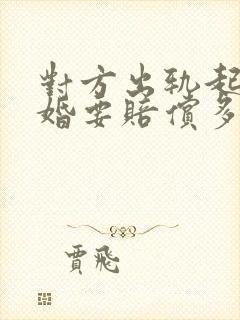 對方出軌起
婚要賠償多
賈飛